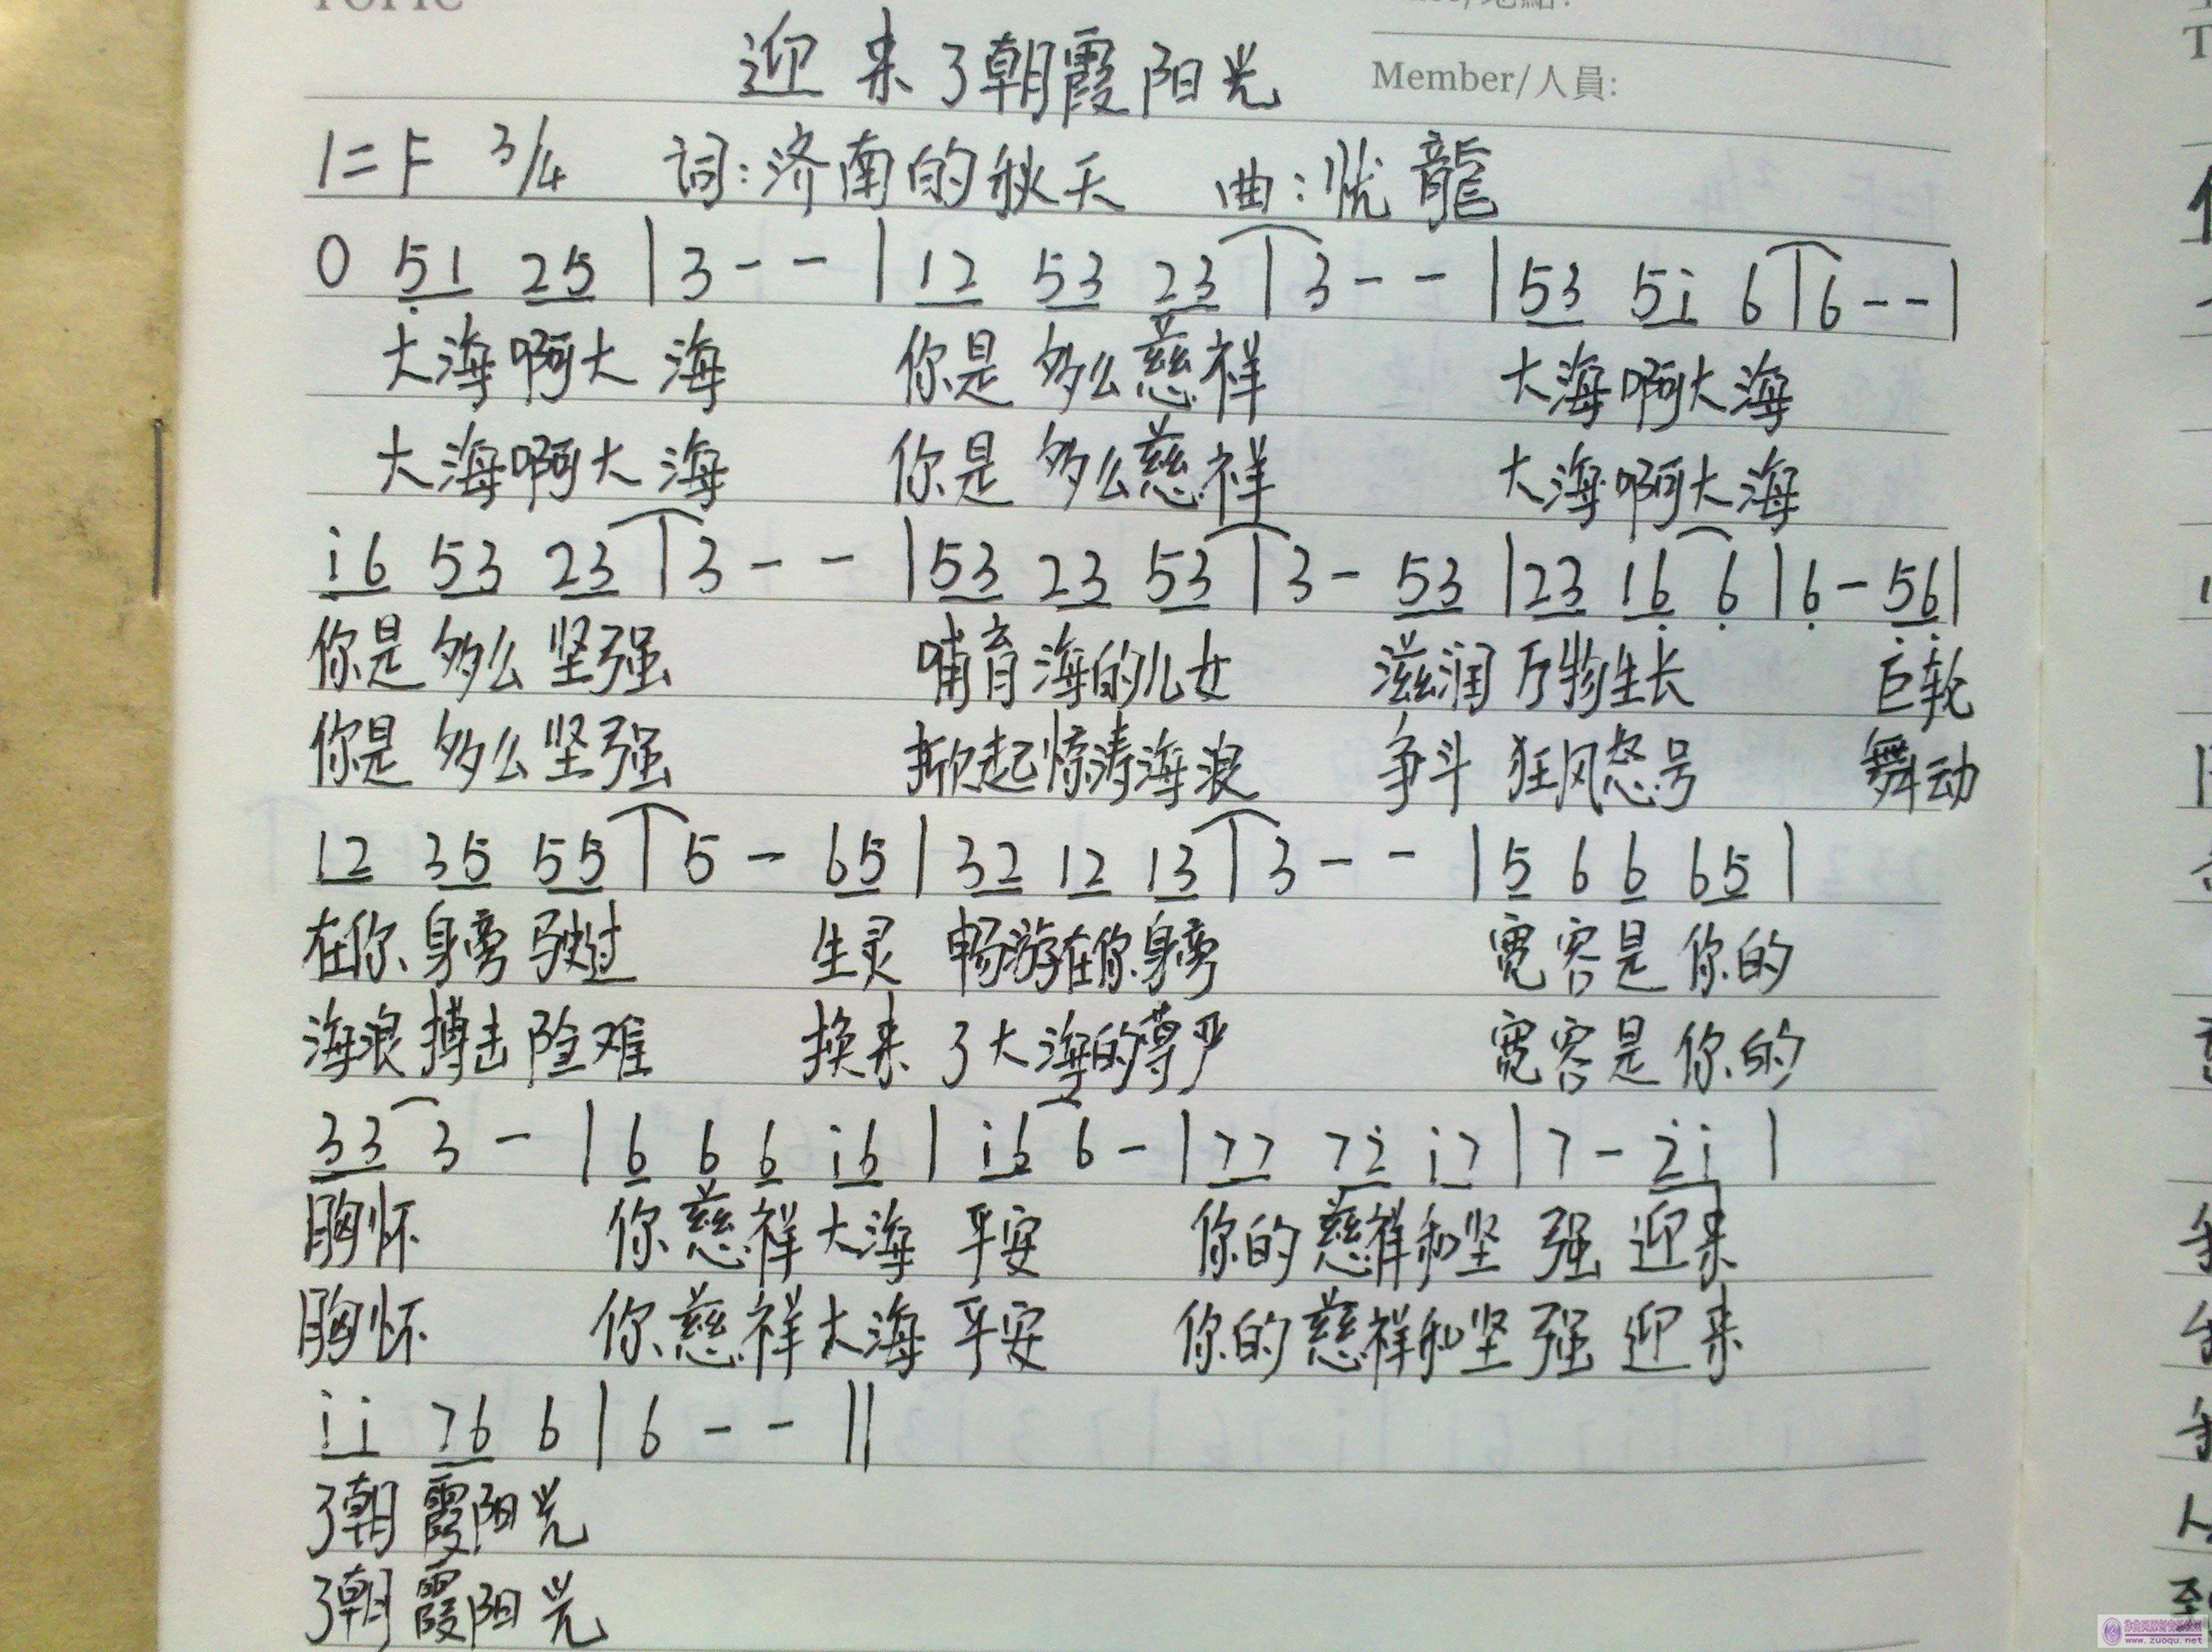 TOPIC
迎来了朝霞阳光
Member/人員:
1=F 3/4 词:济南的秋天 曲:忧龍
0 51 25 | 3 - - | 12 53 23 | 3 - - | 53 5i 6 | 6 - - |
大海啊大海 你是多么慈祥 大海啊大海
大海啊大海 你是多么慈祥 大海啊大海
i6 53 23 | 3 - - | 53 23 53 | 3 - 53 | 23 16 6 | 6 - 56 |
你是多么坚强 哺育海的儿女 滋润万物生长 巨轮
你是多么坚强 掀起惊涛海浪 争斗狂风怒号 舞动
12 35 55 | 5 - 65 | 32 12 13 | 3 - - | 5 6 6 65 |
在你身旁驶过 生灵畅游在你身旁 宽容是你的
海浪搏击险难 换来了大海的尊严 宽容是你的
33 3 - | 6 6 6 i6 | i6 6 - | 77 7ż i7 | 7 - żi |
胸怀 你慈祥大海平安 你的慈祥和坚强迎来
胸怀 你慈祥大海平安 你的慈祥和坚强迎来
ii 76 6 | 6 - - ||
了朝霞阳光
了朝霞阳光
www.zuoqu.net